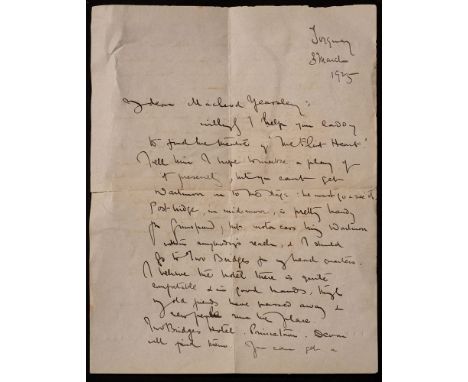 Torquay
8 March
1925
My dear Macleod Yearsley:
willingly I help your laddy
to find the theatre of 'The Flint Heart'
Tell him I hope to make a play of
it presently, but you can't get
Dartmoor on to the stage: he must go & see it.
Postbridge, in mid moor, is pretty handy
for Grimspound, but motor cars bring Dartmoor
within anybody's reach, & I should
go to Two Bridges for my head quarters.
I believe the hotel there is quite
comfortable & in good hands, though
my old friends have passed away &
new people run the place
Two Bridges Hotel. Princetown. Devon
will find them. You can get a